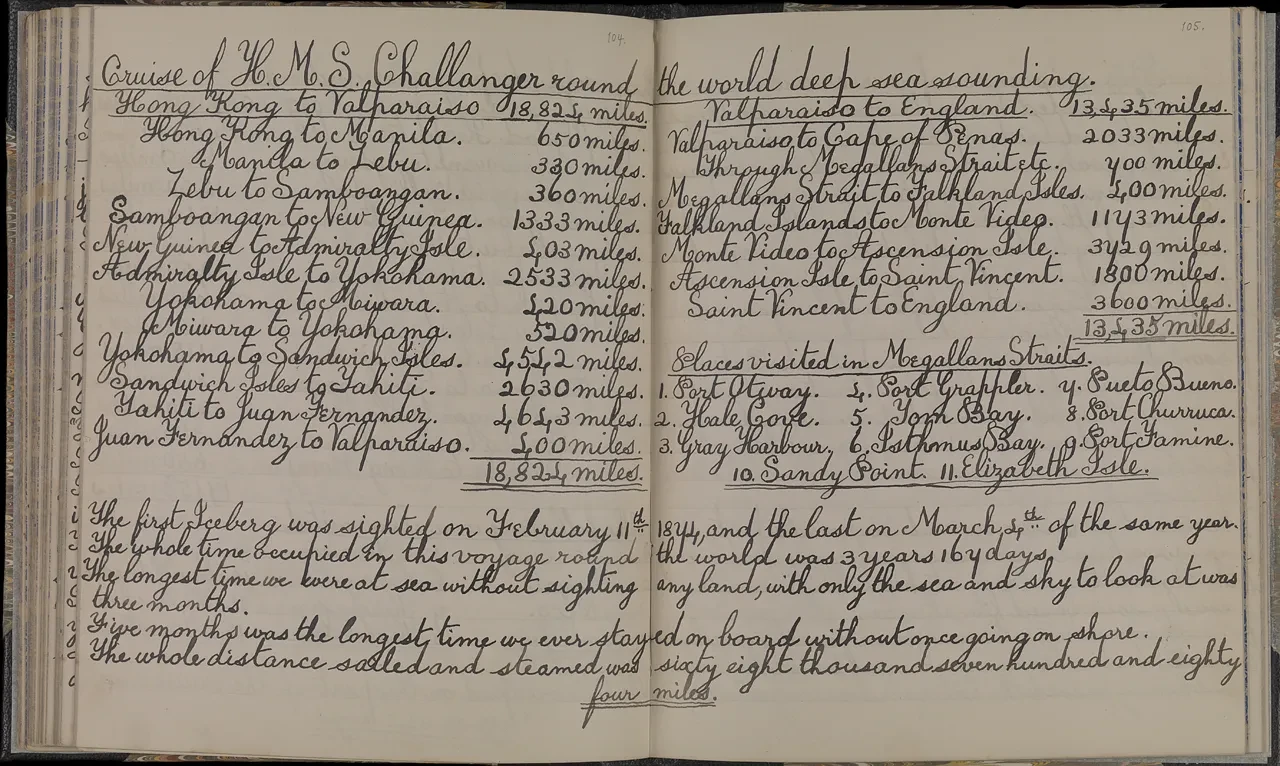 104.
105.
Cruise of H.M.S. Challanger round the world deep sea sounding.
Hong Kong to Valparaiso 18,824 miles.
Hong Kong to Manila. 650 miles.
Manila to Zebu. 380 miles.
Zebu to Samboangan. 360 miles.
Samboangan to New Guinea. 1333 miles.
New Guinea to Admiralty Isle. 403 miles.
Admiralty Isle to Yokohama. 2533 miles.
Yokohama to Miwara. 420 miles.
Miwara to Yokohama. 520 miles.
Yokohama to Sandwich Isles. 4542 miles.
Sandwich Isles to Tahiti. 2630 miles.
Tahiti to Juan Fernandez. 4643 miles.
Juan Fernandez to Valparaiso. 400 miles.
18,824 miles.
Valparaiso to England. 13,435 miles.
Valparaiso to Cape of Penas. 2033 miles.
Through Megallans Strait etc. 700 miles.
Megallans Strait to Falkland Isles. 400 miles.
Falkland Islands to Monte Video. 1173 miles.
Monte Video to Ascension Isle. 3729 miles.
Ascension Isle to Saint Vincent. 1800 miles.
Saint Vincent to England. 3600 miles.
13,435 miles.
Places visited in Megallans Straits.
1. Port Otway. 4. Port Grappler. 7. Pueto Bueno.
2. Hale Cove. 5. Tom Bay. 8. Port Churruca.
3. Gray Harbour. 6. Isthmus Bay. 9. Port Famine.
10. Sandy Point. 11. Elizabeth Isle.
The first Iceberg was sighted on February 11th 1874, and the last on March 4th of the same year.
The whole time occupied in this voyage round the world was 3 years 167 days,
The longest time we were at sea without sighting any land, with only the sea and sky to look at was
three months.
Five months was the longest time we ever stayed on board without once going on shore.
The whole distance sailed and steamed was sixty eight thousand seven hundred and eighty
four miles.